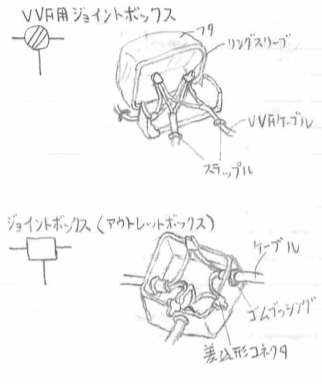 VVF用ジョイントボックス
フタ
リングスリーブ
VVFケーブル
ステップル
ジョイントボックス(アウトレットボックス)
ケーブル
ゴムブッシング
差込形コネクタ